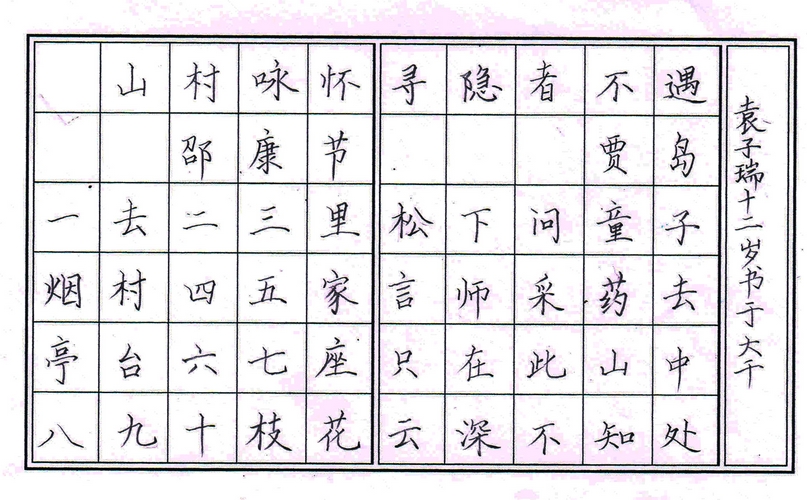 山村咏怀
邵康节
一去二三里
烟村四五家
亭台六七座
八九十枝花
寻隐者不遇
贾岛
松下问童子
言师采药去
只在此山中
云深不知处
袁子瑞十二岁书于大千